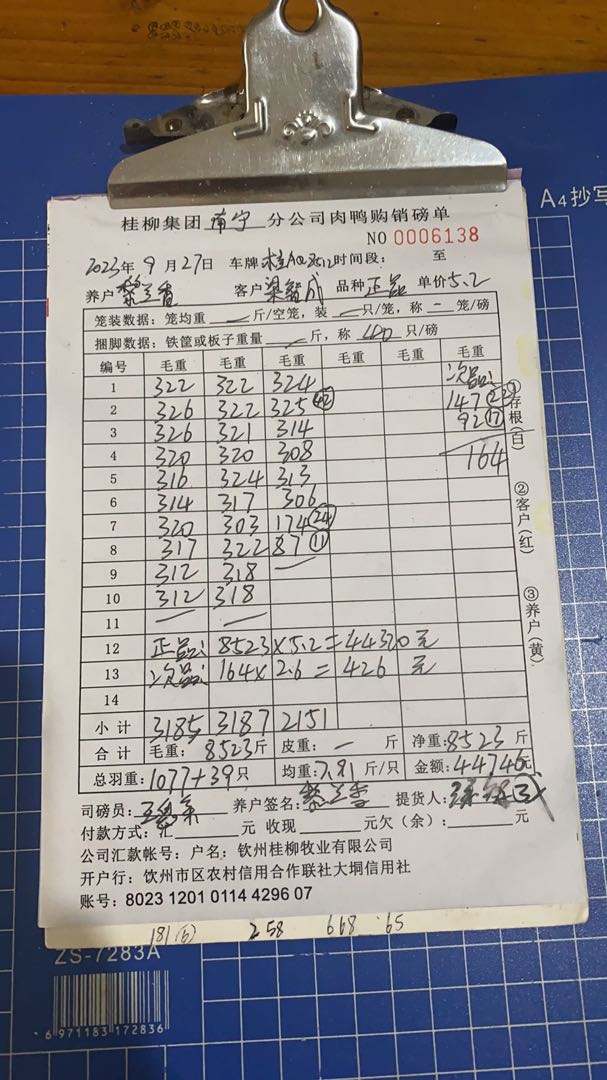 A4抄写
桂柳集团 南宁 分公司肉鸭购销磅单
NO 0006138
2023年 9 月 27日 车牌 桂A 时间段： 至
养户 黎兰香 客户 梁 成 品种 正品 单价5.2
笼装数据：笼均重 — 斤/空笼，装 — 只/笼，称 — 笼/磅
捆脚数据：铁筐或板子重量 — 斤，称 40 只/磅
编号 毛重 毛重 毛重 毛重 毛重 毛重
1 322 322 324 次品：
2 326 322 325 (42) 147
3 326 321 314 92 (17)
4 320 320 308 164
5 316 324 313
6 314 317 306
7 320 303 174 (24)
8 317 322 87 (11)
9 312 318 —
10 312 318
11 — —
12 正品：8523×5.2=44320元
13 次品：164×2.6=426 元
14
小计 3185 3187 2151
合计 毛重：8523斤 皮重：— 斤 净重：8523斤
总羽重：1077+39只 均重：7.91斤/只 金额：44746元
①存根(白)
②客户(红)
③养户(黄)
司磅员： 养户签名：黎兰香 提货人：
付款方式： 元 收现 元欠（余）： 元
公司汇款帐号：户名：钦州桂柳牧业有限公司
开户行：饮州市区农村信用合作联社大垌信用社
账号：8023 1201 0114 4296 07
181(6) 258 668 65
ZS-7283A
6 971183 172836